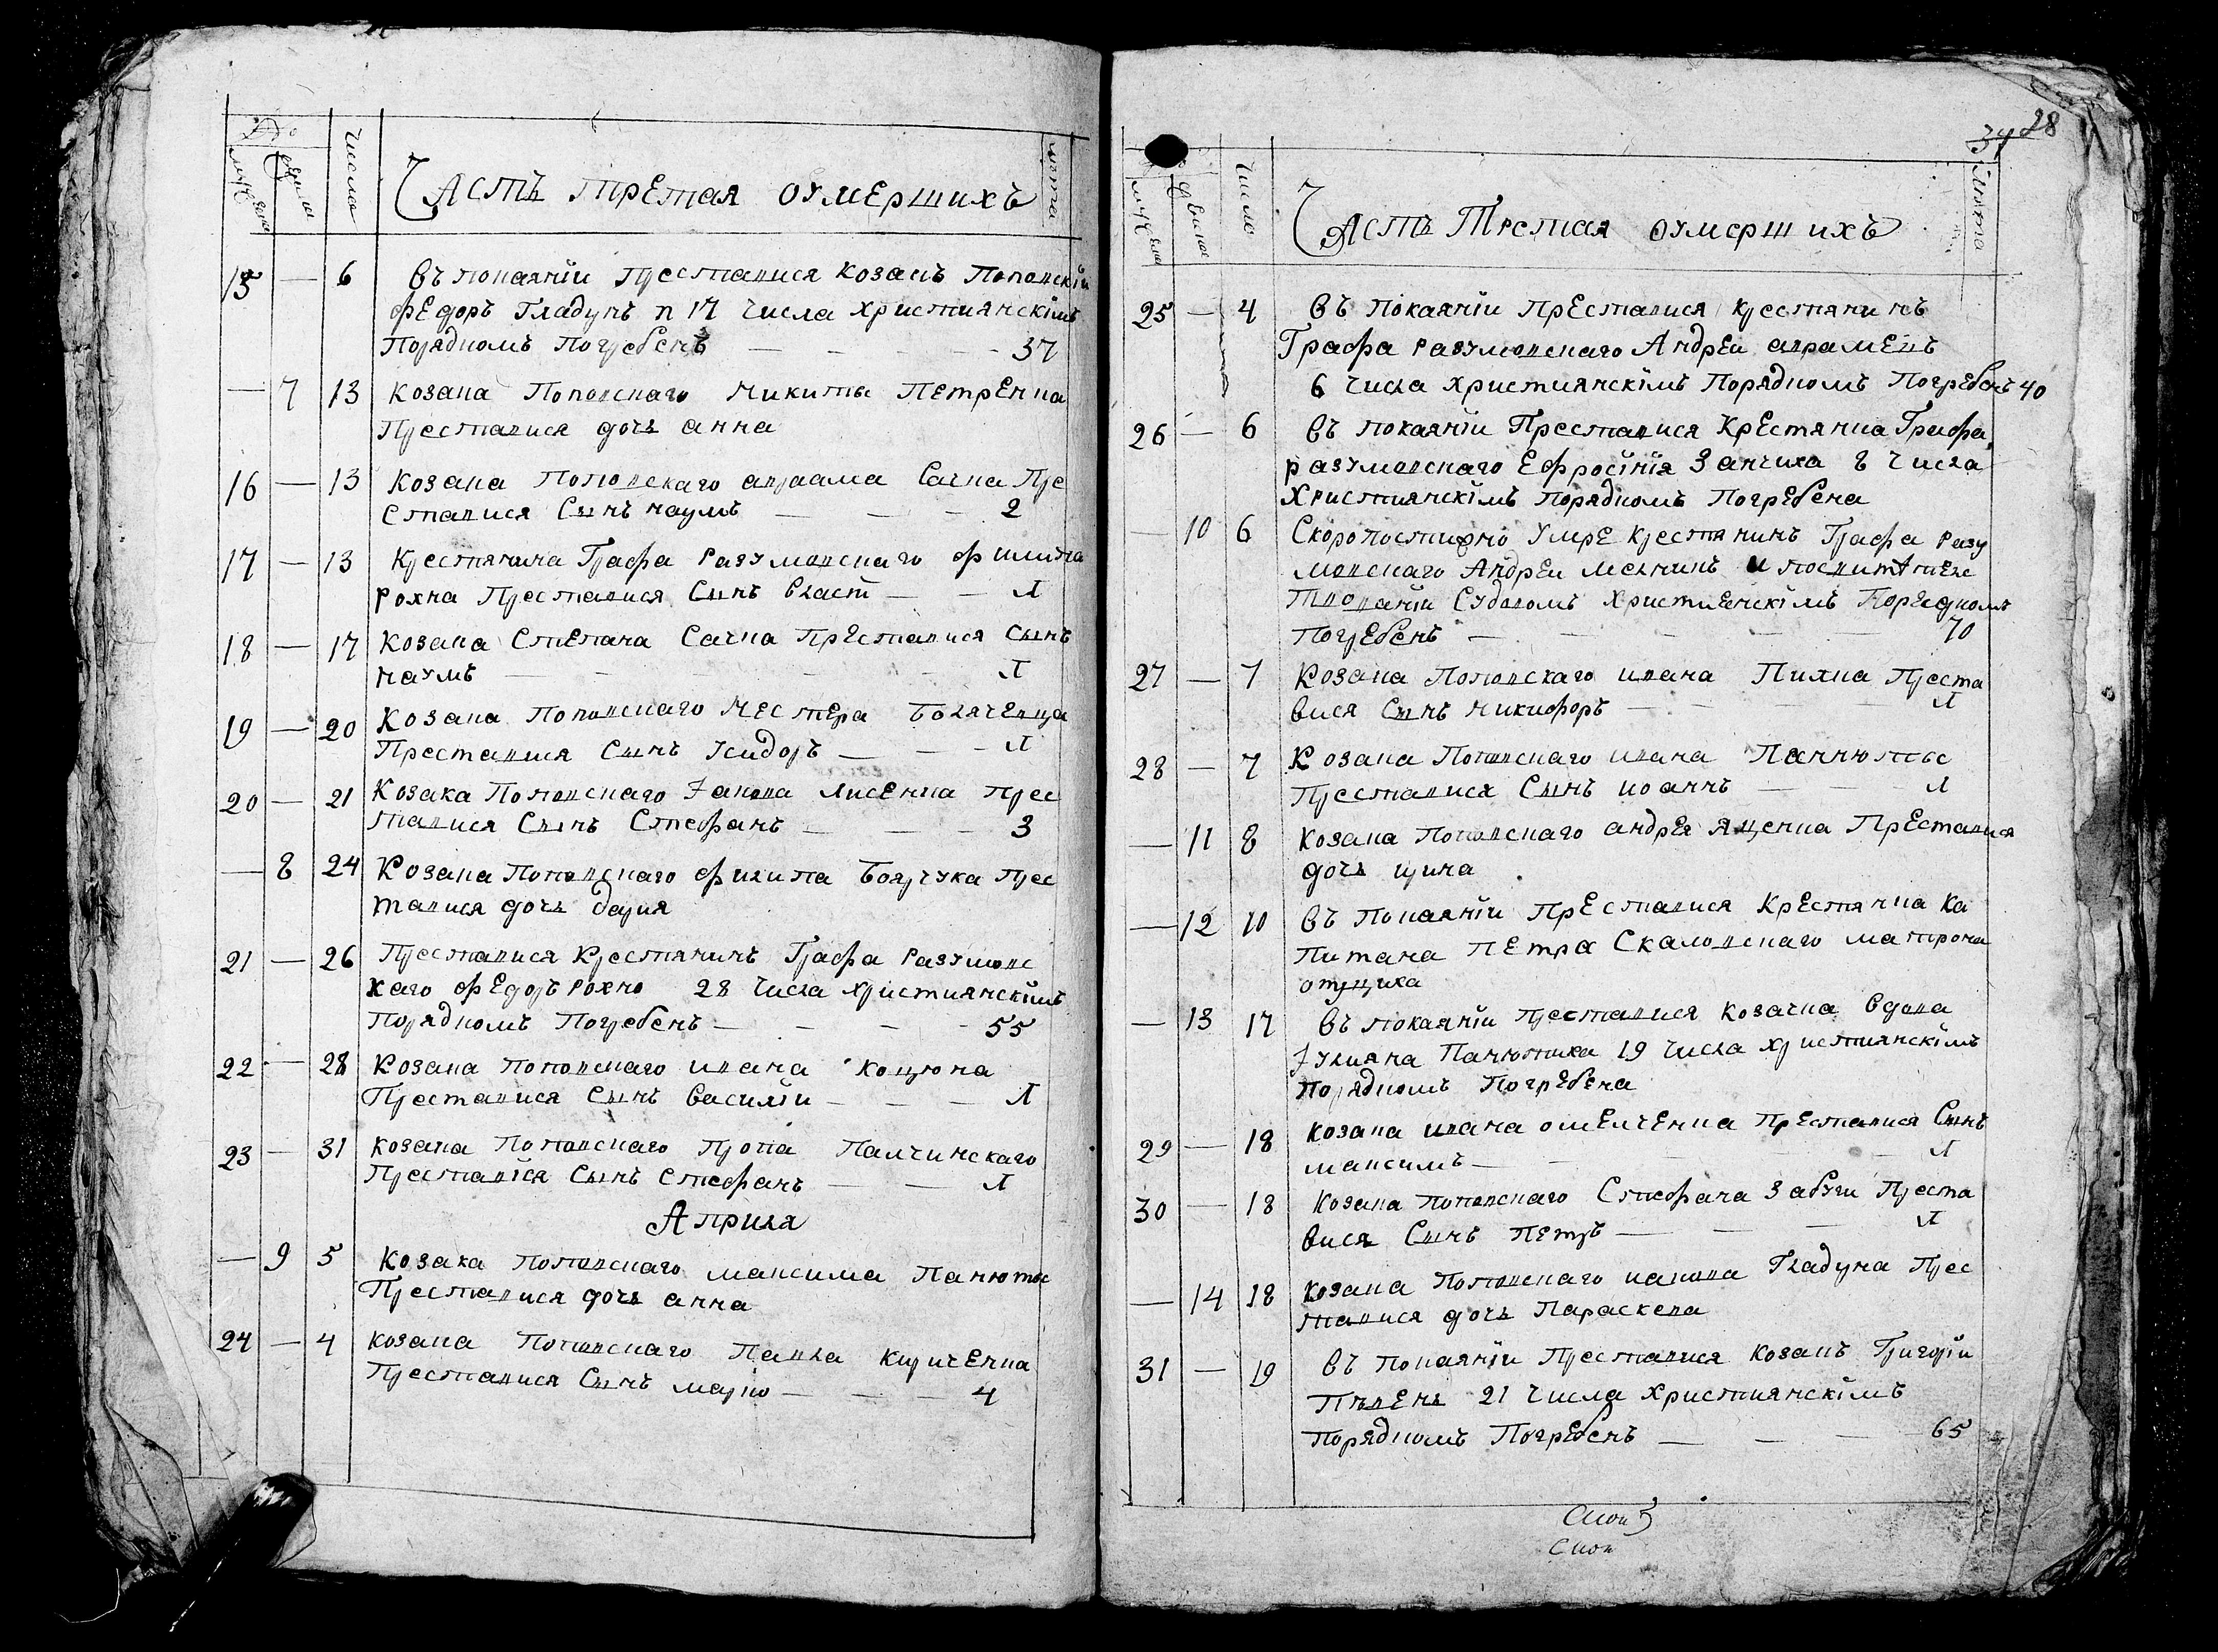 Числа
лѣта
Часть третая оумершихъ
15 — 6 Въ покаянїи Преставися козакъ Поповскїи
Федоръ Гладунъ п 17 числа християнскїмъ
Порядкомъ Погребенъ — — — 37
— 7 13 Козака Поповскаго Никиты Петренка
Преставися дочь анна
16 — 13 Козака Поповскаго авраама Сачка Пре
ставися Сынъ наумъ — — — 2
17 — 13 Крестянина Графа Разумовскаго филипа
рохна Преставися Сынъ Власт — — Л
18 — 17 Козака Степана Сачка Преставися Сынъ
наумъ — — — — Л
19 — 20 Козака Поповскаго Нестера
Преставися Сынъ Ісидоръ — — Л
20 — 21 Козака Поповскаго Іакова Лисенка Прес
тавися Сынъ Стефанъ — — — 3
— 8 24 Козака Поповскаго филипа Боярчука Прес
тавися дочь дария
21 — 26 Преставися Крестянинъ Графа Разумовс
каго Федоръ рохно 28 числа християнскїмъ
Порядкомъ Погребенъ — — — 55
22 — 28 Козака Поповскаго ивана Коцюка
Преставися Сынъ Василїи — — — Л
23 — 31 Козака Поповскаго Прокпа Палчинскаго
Преставїся Сынъ Стефанъ — — Л
Априля
— 9 5 Козака Поповскаго максима Панюты
Преставися дочь анна
24 — 4 Козака Поповскаго Павла Кириченка
Преставися Сынъ марко — — — 4
34 28
Число
Лѣта
Часть Третая оумершихъ
25 — 4 Въ покаянїи Преставися крестянинъ
Графа Разумовскаго Андреи авраменъ
6 числа християнскїмъ Порядкомъ Погребенъ 40
26 — 6 Въ покаянїи Преставися Крестянка Графа
разумовскаго Ефросїнїя Занчиха 8 числа
Християнскїмъ порядкомъ Погребена
— 10 6 Скоропостижно Умре крестянинъ Графа Разу
мовскаго Андреи Мелникъ и
Судовомъ Христиенскїмъ Поредкомъ
Погребенъ — — — — 70
27 — 7 Козака Поповскаго ивана Пилка Преста
вися Сынъ никифоръ — — — Л
28 — 7 Козака Поповскаго ивана Паннюты
Преставися Сынъ иоаннъ — — Л
— 11 8 Козака Поповскаго андрея Яценка Преставися
дочь ирина
— 12 10 Въ покаянїи Преставися Крестянка Ка
питана Петра Скаловскаго матрона
— 13 17 Въ покаянїи преставися козачка вдова
Іулияна Панютика 19 числа християнскїмъ
порядкомъ Погребена
29 — 18 Козака ивана омелченка Преставися Сынъ
максимъ — — — — Л
30 — 18 Козака поповскаго Стефана Забуги Преста
вися Сынъ Петръ — — — Л
— 14 18 Козака Поповскаго иакова Гладуна Прес
тавися дочь Параскева
31 — 19 Въ покаянїи Преставися козакъ Григорїи
Пѣвень 21 числа християнскїмъ
порядкомъ Погребенъ — — — 65